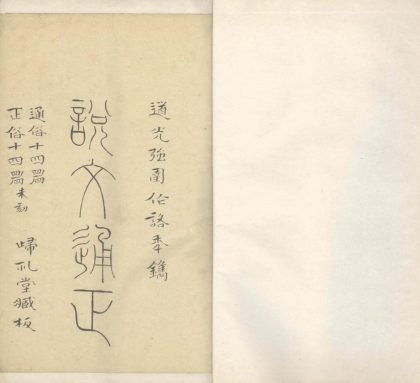 道光強圉作詻秊鐫
說文通正
通俗十四篇
正俗十四篇未刻
㱕礼堂臧板